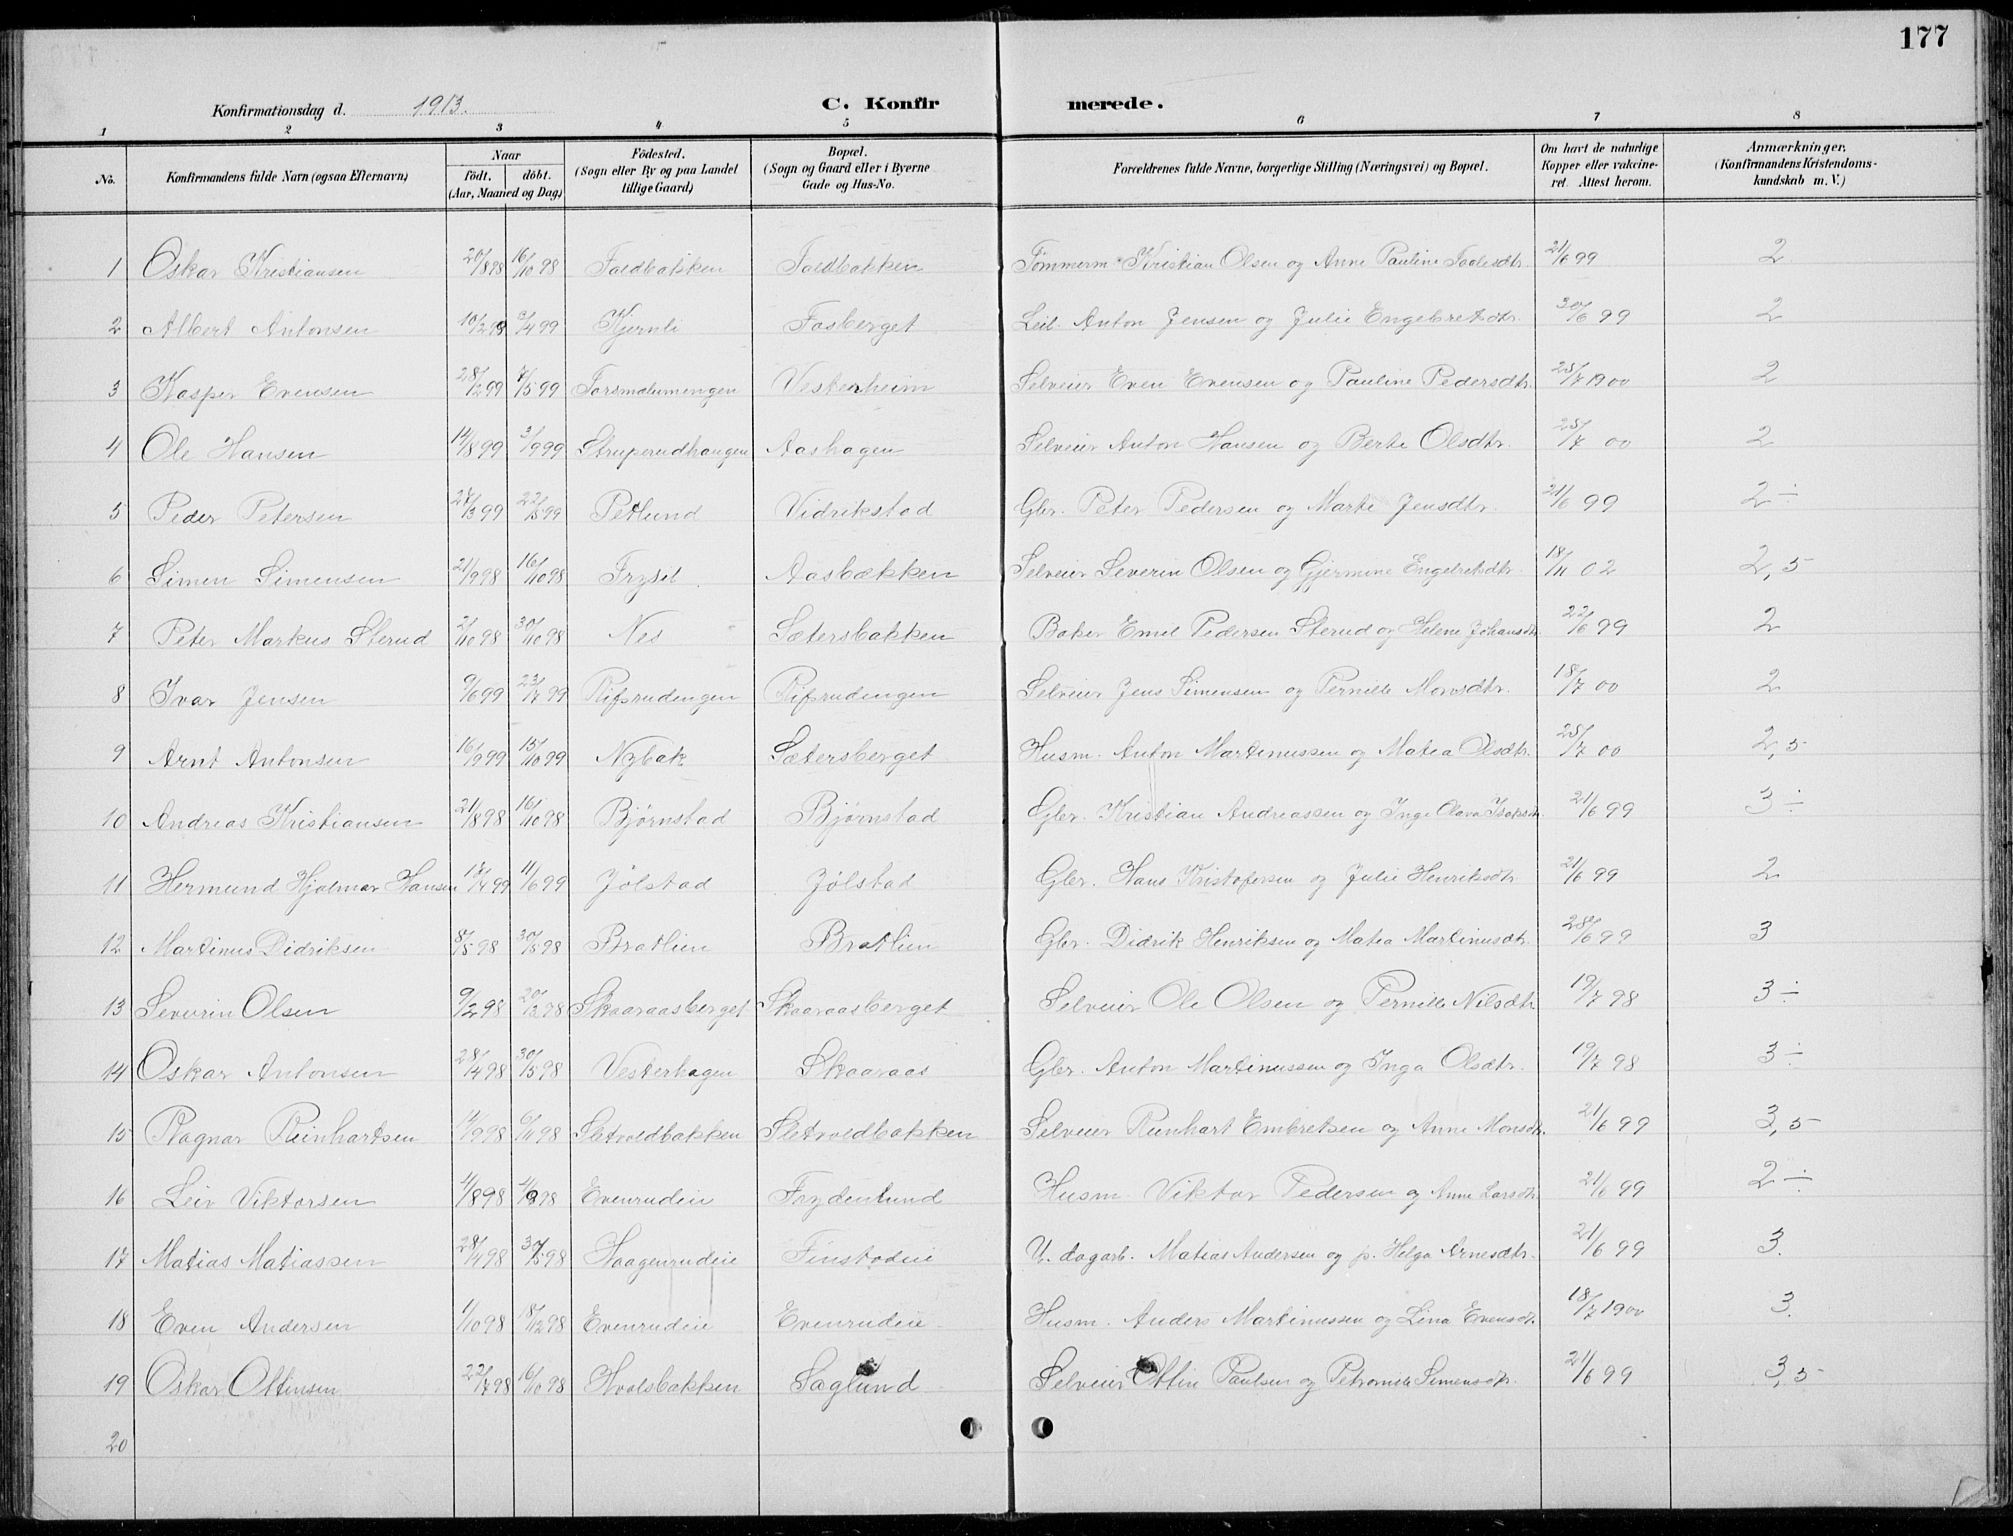 177
Konfirmationsdag d. 1913.
C. Konfirmerede.
1 2 3 4 5 6 7 8
No. Konfirmandens fulde Navn (ogsaa Efternavn) Naar Født. døbt. (Aar, Maaned og Dag) Fødested. (Sogn eller By og paa Landet tillige Gaard) Bopæl. (Sogn og Gaard eller i Byerne Gade og Hus-No. Forældrenes fulde Navne, borgerlige Stilling (Næringsvei) og Bopæl. Om havt de naturlige Kopper eller vakcineret. Attest herom. Anmærkninger. (Konfirmandens Kristendomskundskab m. V.)
1 Oskar Kristiansen 20/8 98 16/10 98 Faldbakken Faldbakken Tømmerm. Kristian Olsen og Anne Pauline 21/6 99 2
2 Albert Antonsen 3/4 99 Kjernli Fosberget Leil. Anton Jensen og Julie Engebretsdtr. 30/6 99 2
3 Kasper Evensen 28/2 99 7/5 99 Vesterheim Selveier Even Evensen og Pauline Pedersdtr. 25/7 1900 2
4 Ole Hansen 14/8 99 3/9 99 Struperudhaugen Aashagen Selveier Anton Hansen og Berte Olsdtr. 25/7 00 2
5 Peder Petersen 27/3 99 22/5 99 Petlund Vidrikstad Gbr. Peter Pedersen og Marte Jensdtr. 21/6 99 2 ÷
6 Simen Simensen 21/9 98 16/10 98 Trysil Aasbækken Selveier Severin Olsen og Gjermine Engebretsdtr. 18/11 02 2,5
7 Peter Markus Sterud 2/10 98 30/10 98 Nes Sætersbakken Baker Emil Pedersen Sterud og Helene Johansdtr. 22/6 99 2
8 Ivar Jensen 9/6 99 23/7 99 Rifsrudengen Rifsrudengen Selveier Jens Simensen og Pernille Monsdtr. 18/7 00 2
9 Arnt Antonsen 16/9 99 15/10 99 Nybak Sætersberget Husm. Anton Martinussen og Matea Olsdtr. 25/7 00 2,5
10 Andreas Kristiansen 21/8 98 16/10 98 Bjørnstad Bjørnstad Gbr. Kristian Andreassen og Inge Olava Isaksdtr. 21/6 99 3 ÷
11 Hermund Hjalmar Hansen 17/4 99 11/6 99 Jølstad Jølstad Gbr. Hans Kristofersen og Julie Henriksdtr 21/6 99 2
12 Martinus Didriksen 8/5 98 30/5 98 Bratlien Bratlien Gbr. Didrik Henriksen og Matea Martinusdtr. 28/6 99 3
13 Severin Olsen 9/2 98 20/3 98 Skaaraasberget Skaaraasberget Selveier Ole Olsen og Pernille Nilsdtr. 19/7 98 3 ÷
14 Oskar Antonsen 28/4 98 30/5 98 Vesterhagen Skaaraas Gbr. Anton Martinussen og Inga Olsdtr. 19/7 98 3 ÷
15 Ragnar Reinhartsen 14/9 98 6/11 98 Sletvoldbakken Sletvoldbakken Selveier Reinhart Embretsen og Anne Monsdtr. 21/6 99 3,5
16 Leiv Viktorsen Evenrudeie Frydenlund Husm. Viktor Pedersen og Anne Larsdtr. 21/6 99 2 ÷
17 Matias Matiassen 28/4 98 30/5 98 Haagenrudeie Finstadeie U. dagarb. Matias Andersen og p. Helga Arnesdtr. 21/6 99 3.
18 Even Andersen 1/10 98 18/12 98 Evenrudeie Evenrudeie Husm. Anders Martinussen og Lina Evensdtr. 18/7 1900 3.
19 Oskar Ottinsen 22/7 98 16/10 98 Hvalsbakken Saglund Selveier Ottin Paulsen og Simensdtr. 21/6 99 3,5
20